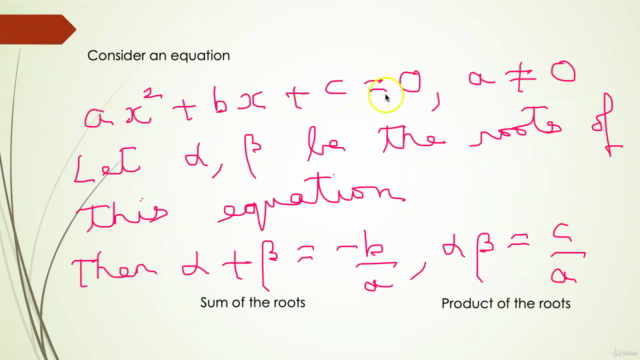 Consider an equation
ax² + bx + c = 0, a ≠ 0
Let α, β be the roots of
this equation
Then α + β = -b/a, αβ = c/a
Sum of the roots Product of the roots